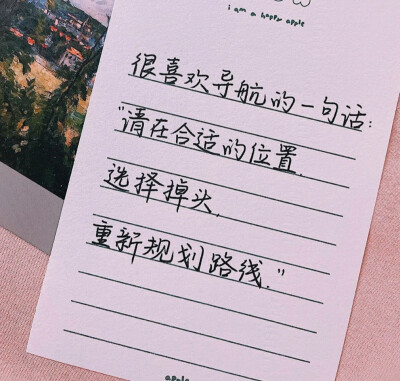 i am a happy apple
很喜欢导航的一句话:
"请在合适的位置.
选择掉头.
重新规划路线."